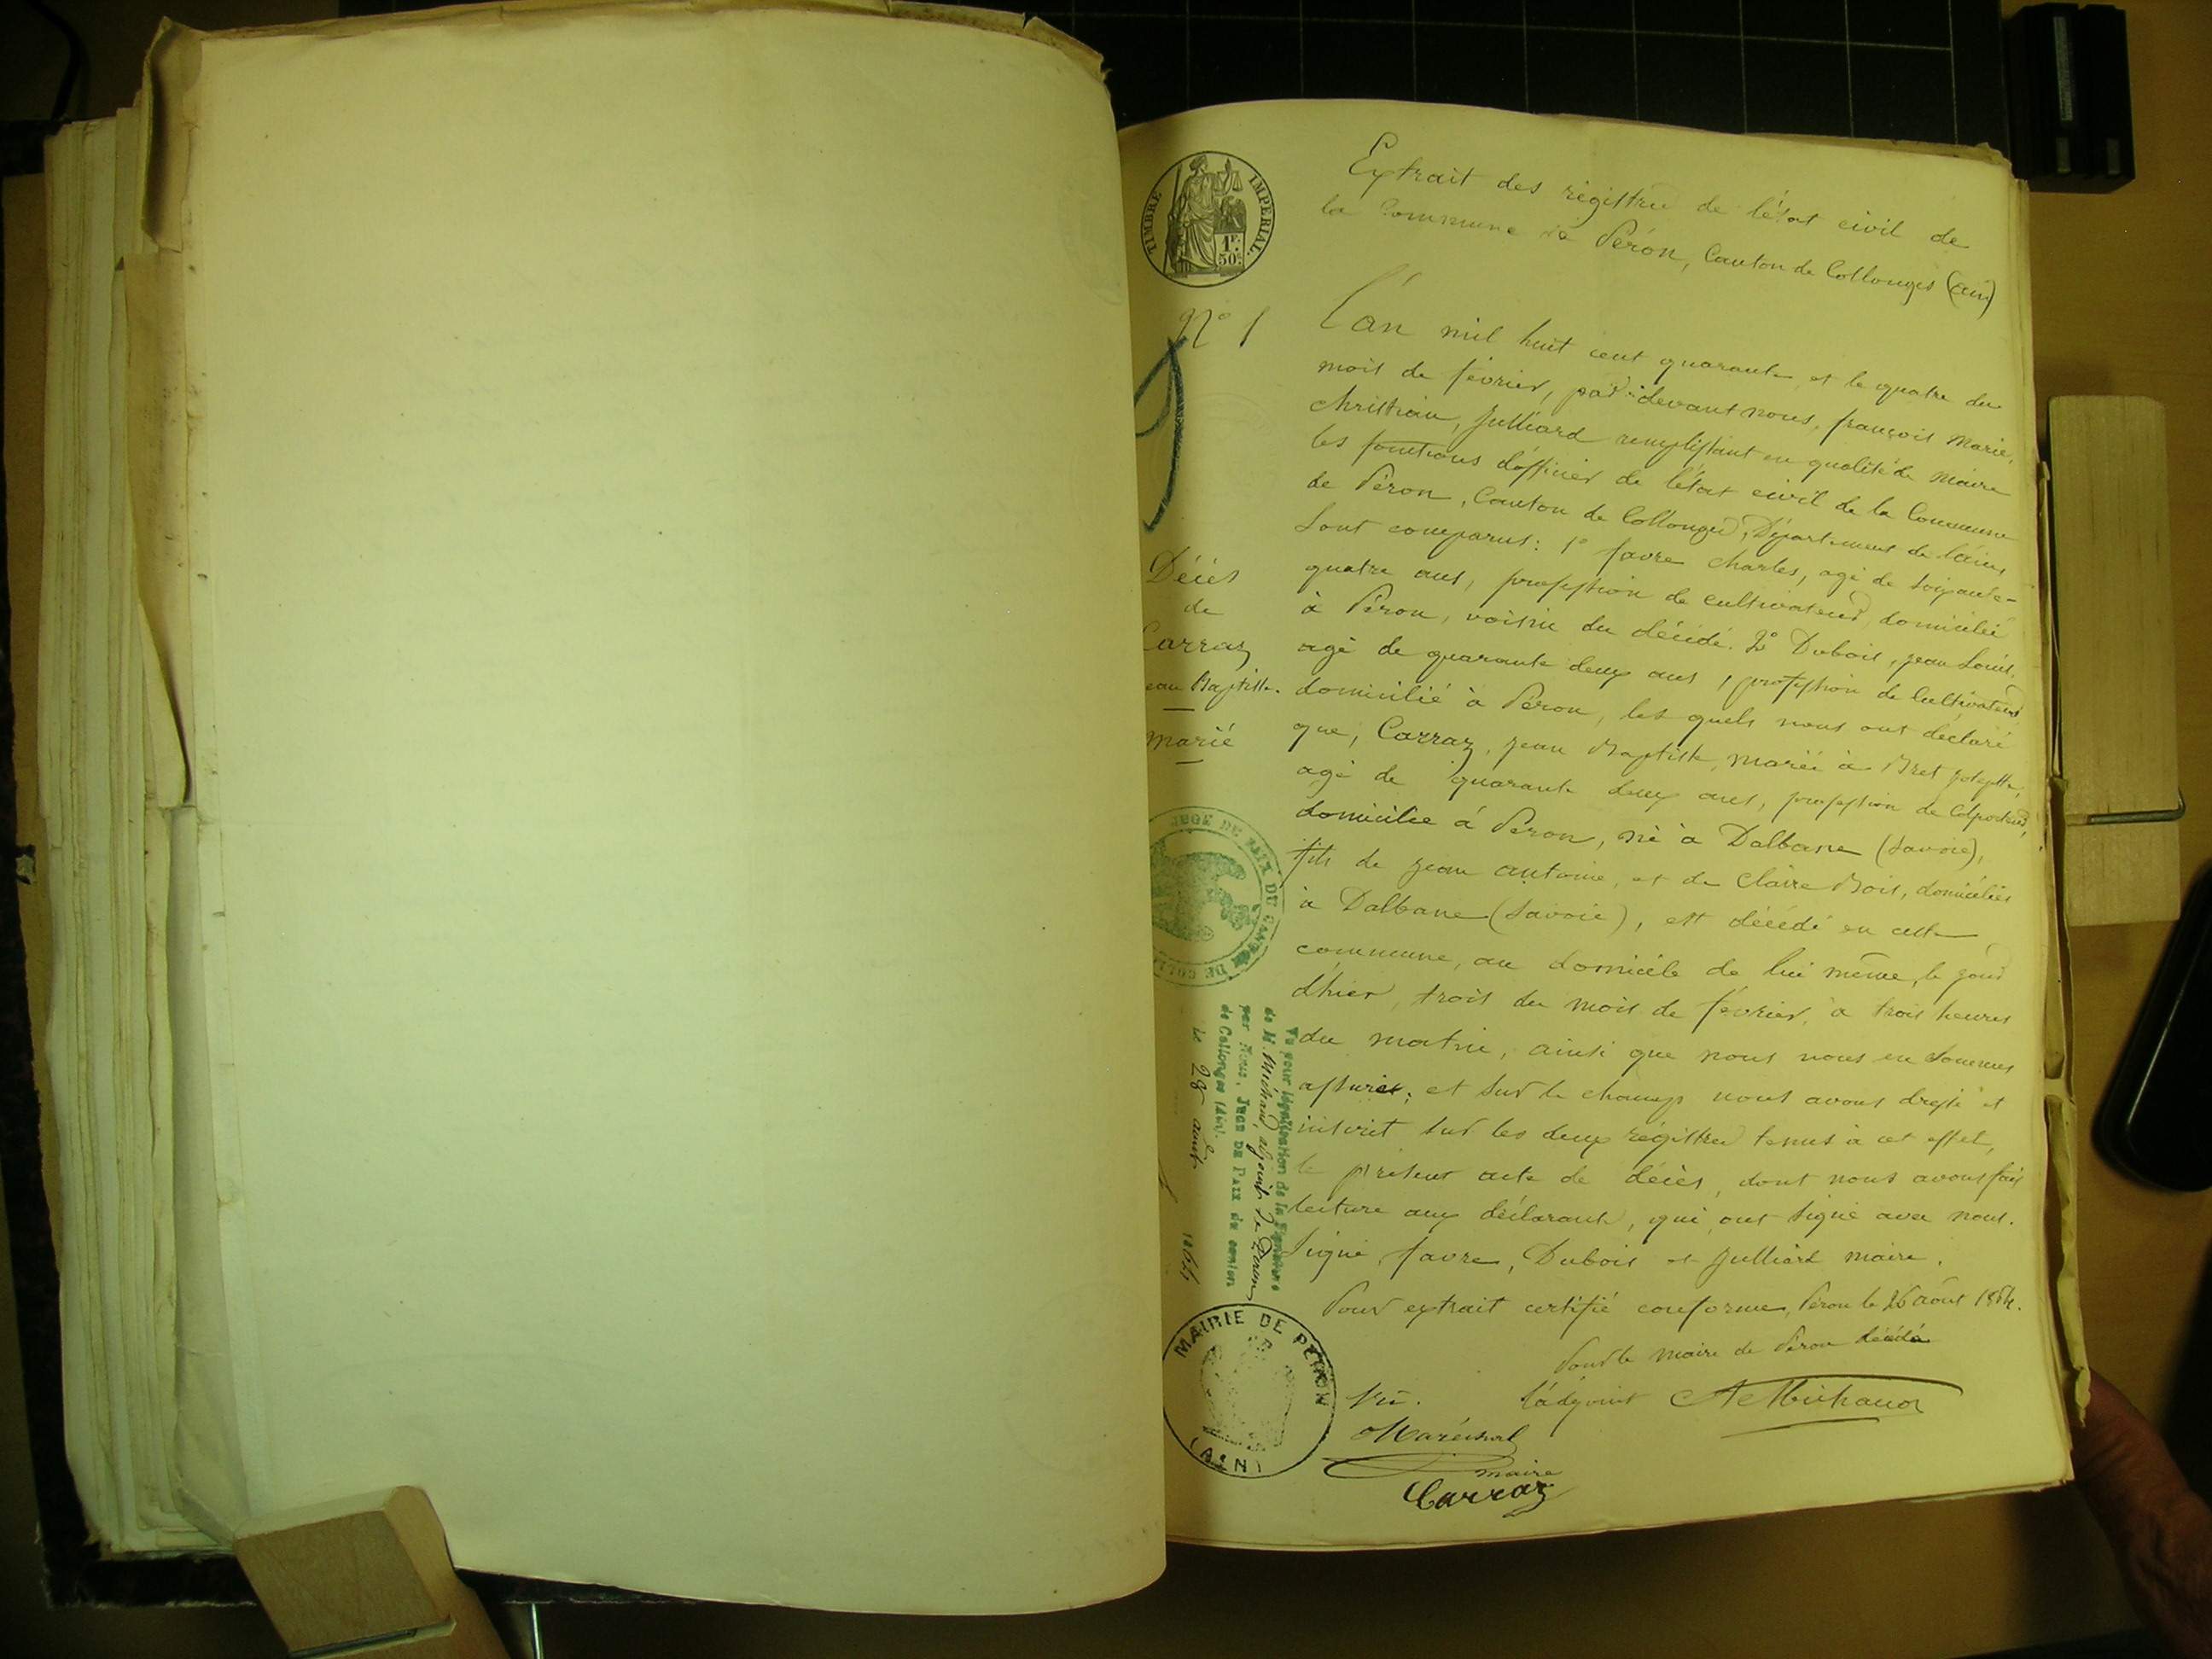 TIMBRE IMPERIAL
1F.
50c.
Extrait des régistres de l'état civil de
la Commune de Péron, Canton de Collonges (ain)
N° 1
L'an mil huit cent quarante et le quatre du
mois de février, par-devant nous, françois Marie,
Christian, Julliard remplissant en qualité de Maire
les fonctions d'officier de l'état civil de la Commune
de Péron, Canton de Collonges, Département de l'ain,
Sont comparus: 1° favre Charles, agé de soixante-
quatre ans, profession de cultivateur, domicilié
à Péron, voisin du décédé. 2° Dubois, jean Louis,
agé de quarante deux ans, profession de Cultivateur
domicilié à Péron, les quels nous ont déclaré
que, Carraz, jean Baptiste, marié à Bret josephte,
agé de quarante deux ans, profession de Colporteur,
domicilié à Péron, né à Dalbane (Savoie),
fils de jean antoine, et de Claire Bois, domiciliés
à Dalbane (Savoie), est décédé en cette
commune, au domicile de lui même, le jour
d'hier, trois du mois de février, à trois heures
du matin, ainsi que nous nous en sommes
assurés; et sur le champ nous avons dressé et
inscrit sur les deux régistres tenus à cet effet,
le présent acte de décès, dont nous avons fait
lecture aux déclarants, qui ont signé avec nous.
Signé favre, Dubois et Julliard maire.
Pour extrait certifié conforme, Péron le 26 août 1864.
Pour le Maire de Péron décédé
l'adjoint A Michaud
Vu.
Maréchal
maire
Carraz
Décès
de
Carraz
ean Baptiste.
Marié
JUGE DE PAIX DU CANTON DE COLL
Vu pour légalisation de la Signature
de M. Michaud adjoint de Péron
par Nous, JUGE DE PAIX du canton
de Collonges (Ain).
le 28 août 1864
MAIRIE DE PÉRON
(AIN)